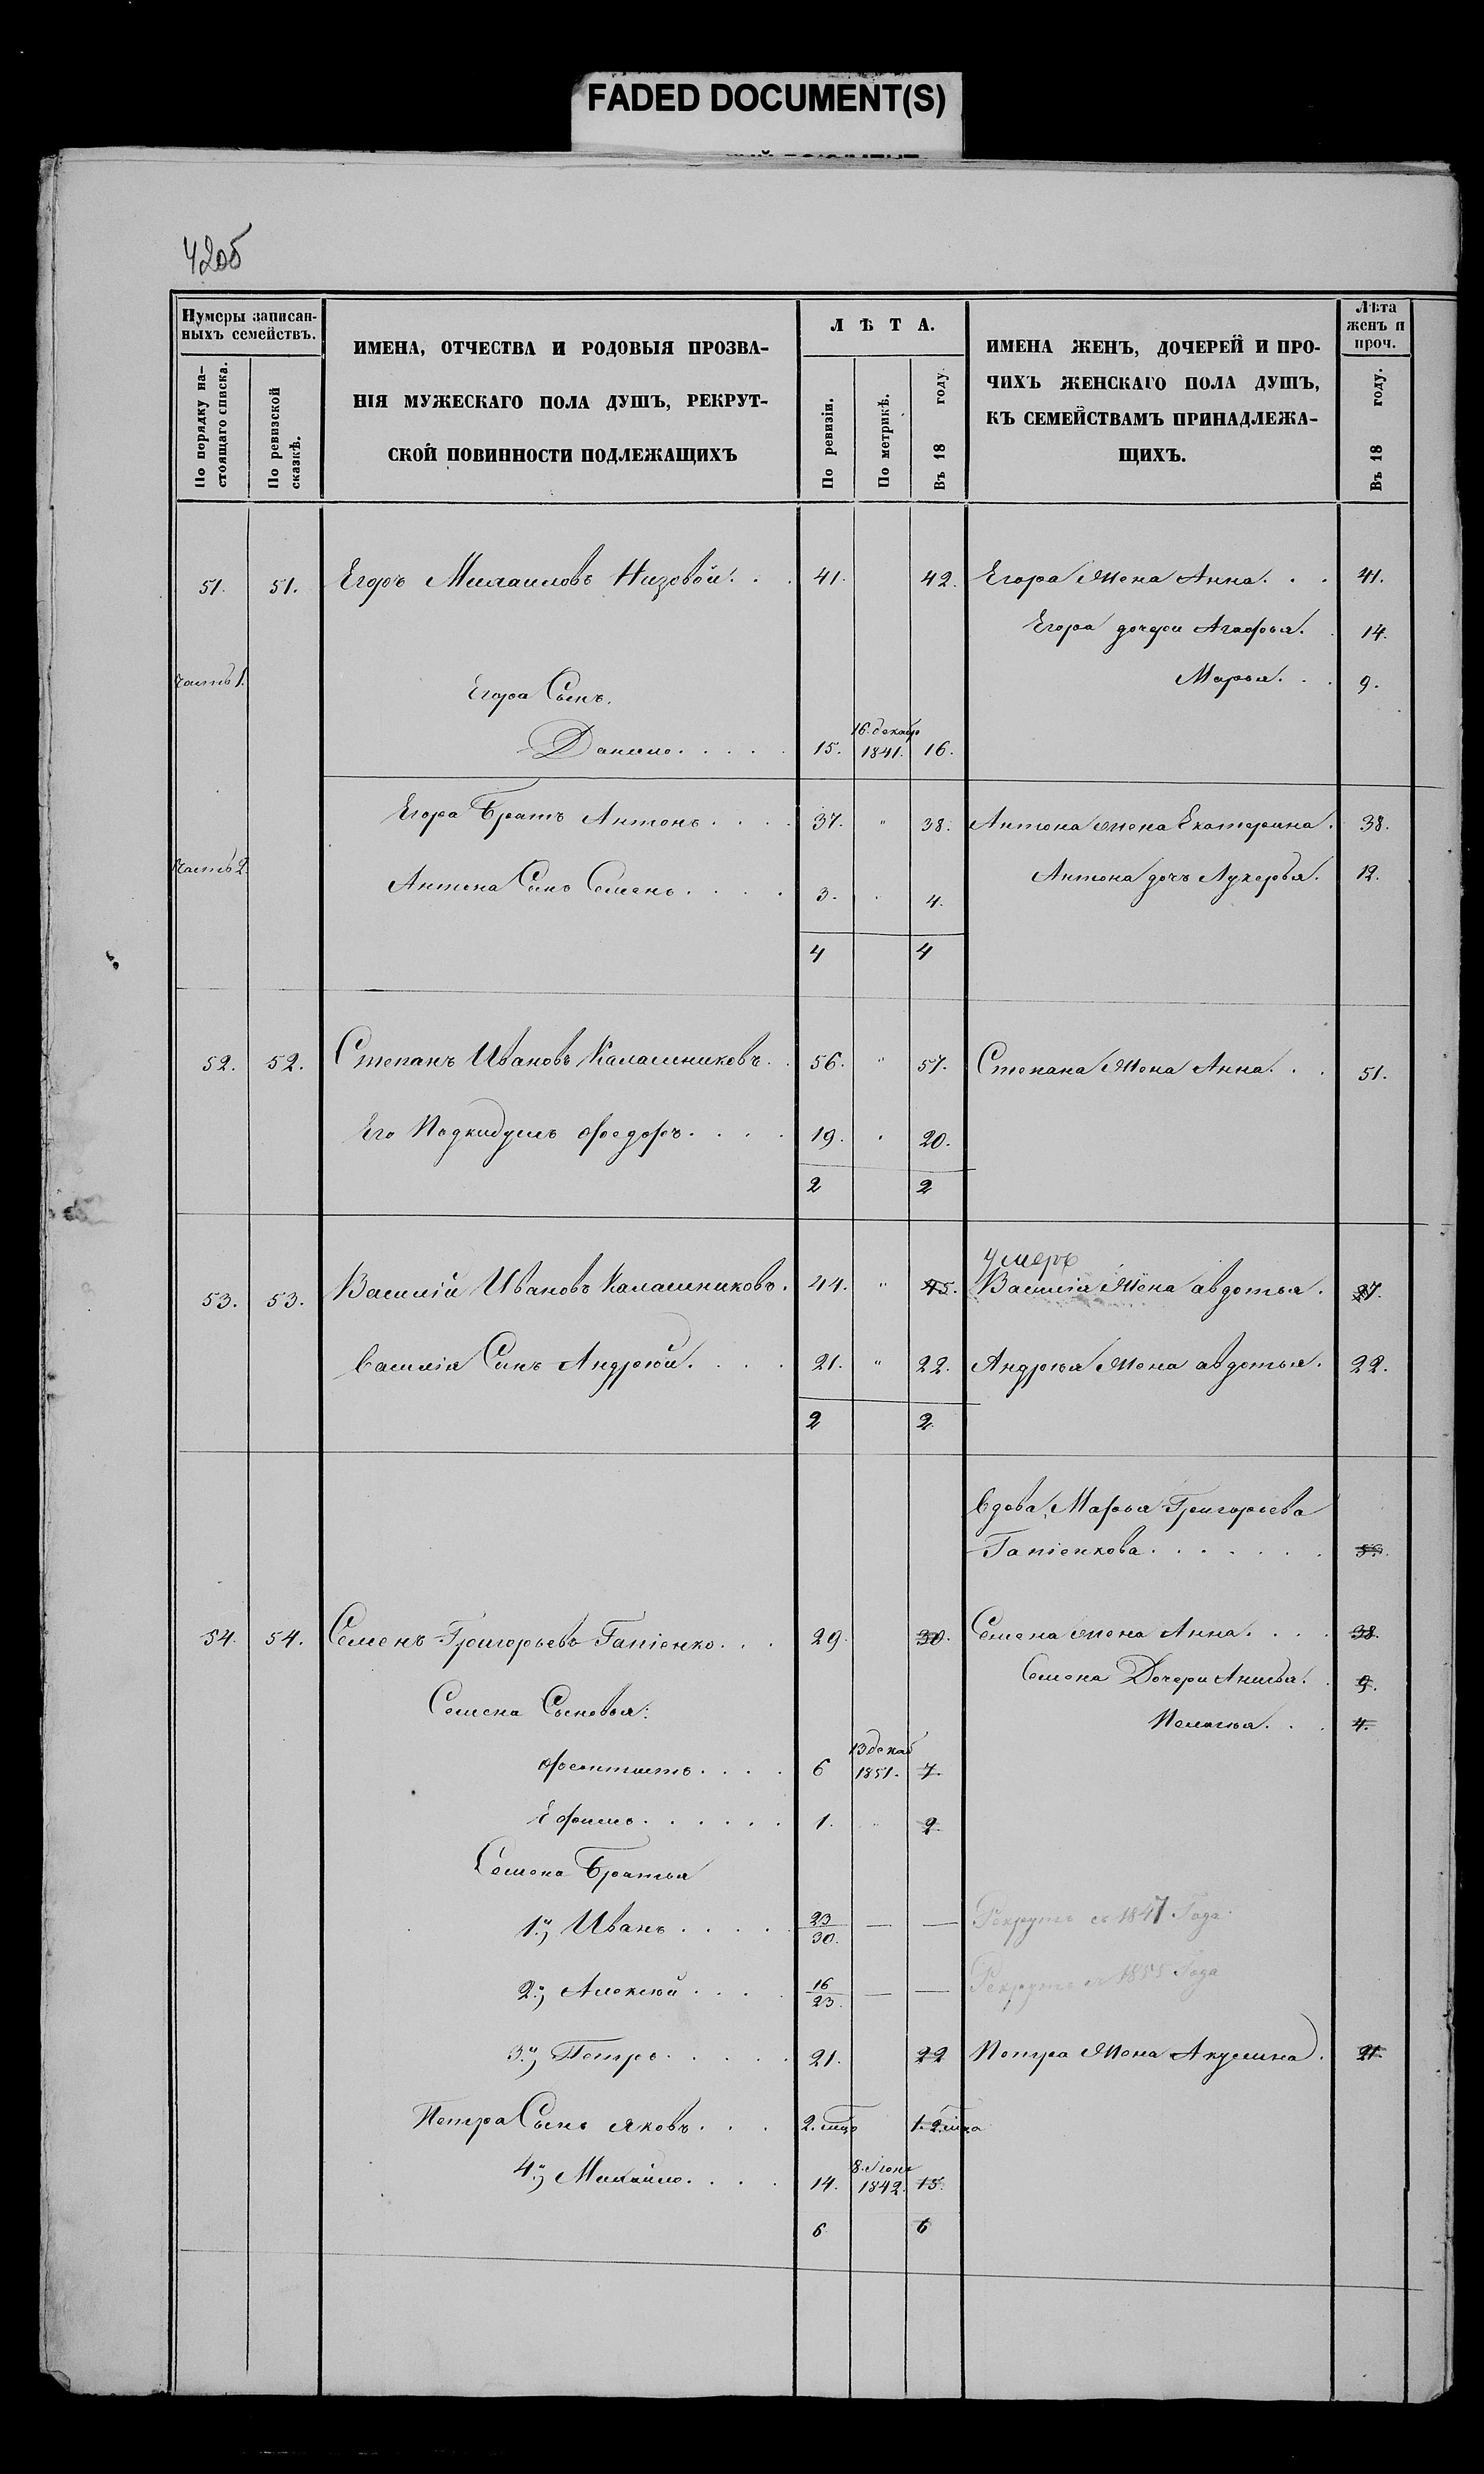 FADED DOCUMENT(S)
42об
Нумеры записан-
ныхъ семействъ.
По порядку на-
стоящаго списка.
По ревизской
сказкѣ.
ИМЕНА, ОТЧЕСТВА И РОДОВЫЯ ПРОЗВА-
НІЯ МУЖЕСКАГО ПОЛА ДУШЪ, РЕКРУТ-
СКОЙ ПОВИННОСТИ ПОДЛЕЖАЩИХЪ
ЛѢТА.
По ревизіи.
По метрикѣ.
Въ 18 году.
ИМЕНА ЖЕНЪ, ДОЧЕРЕЙ И ПРО-
ЧИХЪ ЖЕНСКАГО ПОЛА ДУШЪ,
КЪ СЕМЕЙСТВАМЪ ПРИНАДЛЕЖА-
ЩИХЪ.
Лѣта
женъ и
проч.
Въ 18 году.
51. 51. Егоръ Михаиловъ Низовой. . . 41. 42. Егора жена Анна. . . 41.
Егора дочери Агафья. . 14.
часть 1.
Егора Сынъ.
Марья. . . 9.
Данило. . . . . 15. 16. декабр 1841. 16.
Егора Братъ Антонъ. . . . 37. " 38. Антона жена Екатерина. 38.
часть 2.
Антона Сынъ Семенъ. . . . 3. " 4. Антона дочь Лукерья. 12.
4 4
52. 52. Степанъ Ивановъ Калашниковъ. . 56. " 57. Степана жена Анна. . . 51.
Его Подкидушъ Федоръ. . . . 19. " 20.
2 2
Умеръ
53. 53. Василій Ивановъ Калашниковъ. 44. " 45. Василія жена авдотья. 37.
Василія Сынъ Андрей. . . . 21. " 22. Андрея жена авдотья. 22.
2 2.
Вдова, Марья Григорьева
Гапіенкова. . . . . . .
54. 54. Семенъ Григорьевъ Гапіенко. . . 29. 30. Семена жена Анна. . . . 38.
Семена Дочери Анисья. . 9.
Семена Сыновья:
Пелагея. . . 4.
Феоктистъ. . . . 6 13 декаб 1851. 7.
Ефимъ. . . . . . 1. " 2.
Семена Братья
1.й, Иванъ. . . . . 23/30. — — Рекрутъ съ 1847 Года.
2.й, Алексей. . . . 16/23. — — Рекрутъ съ 1855 Года
3.й, Петръ. . . . . 21. 22 Петра жена Акулина. 21.
Петра Сынъ Яковъ. . . 2. мѣц 1. 2. мѣца
4.й, Михайло. . . . 14. 8. Июня 1842. 15.
6 6